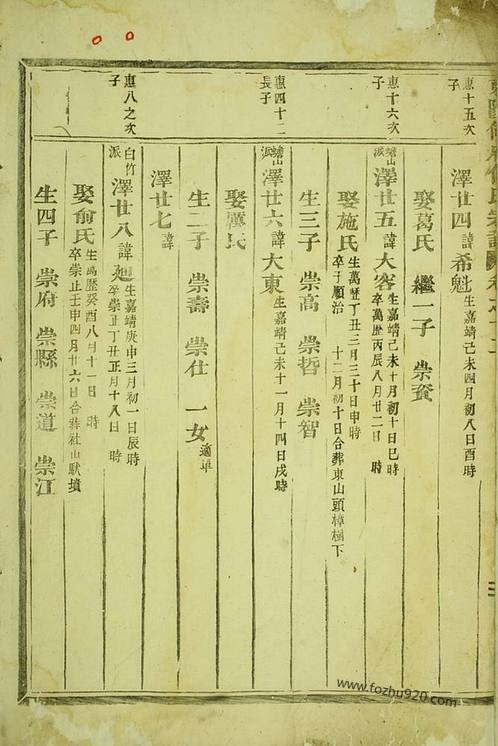 惠十五次子
澤廿四諱希魁生嘉靖己未四月初八日酉時
娶葛氏 繼一子 崇資
惠十六次子
派澤廿五諱大客生嘉靖己未十月初十日巳時
卒萬歷丙辰八月廿二日 時
娶施氏生萬歷丁丑三月三十日申時
卒于順治 十二月初十日合葬東山頭樟樹下
生三子 崇高 崇哲 崇智
惠四十二長子
派澤廿六諱大東生嘉靖己未十一月十四日戌時
娶 氏
生二子 崇壽 崇仕 一女適單
澤廿七諱
惠八之次子
白竹派澤廿八諱 生嘉靖庚申三月初一日辰時
卒崇正丁丑正月十八日 時
娶俞氏生萬歷癸酉八月十一日 時
卒崇正壬申四月廿六日合葬社山 墳
生四子 崇府 崇縣 崇道 崇江
www.fozhu920.com